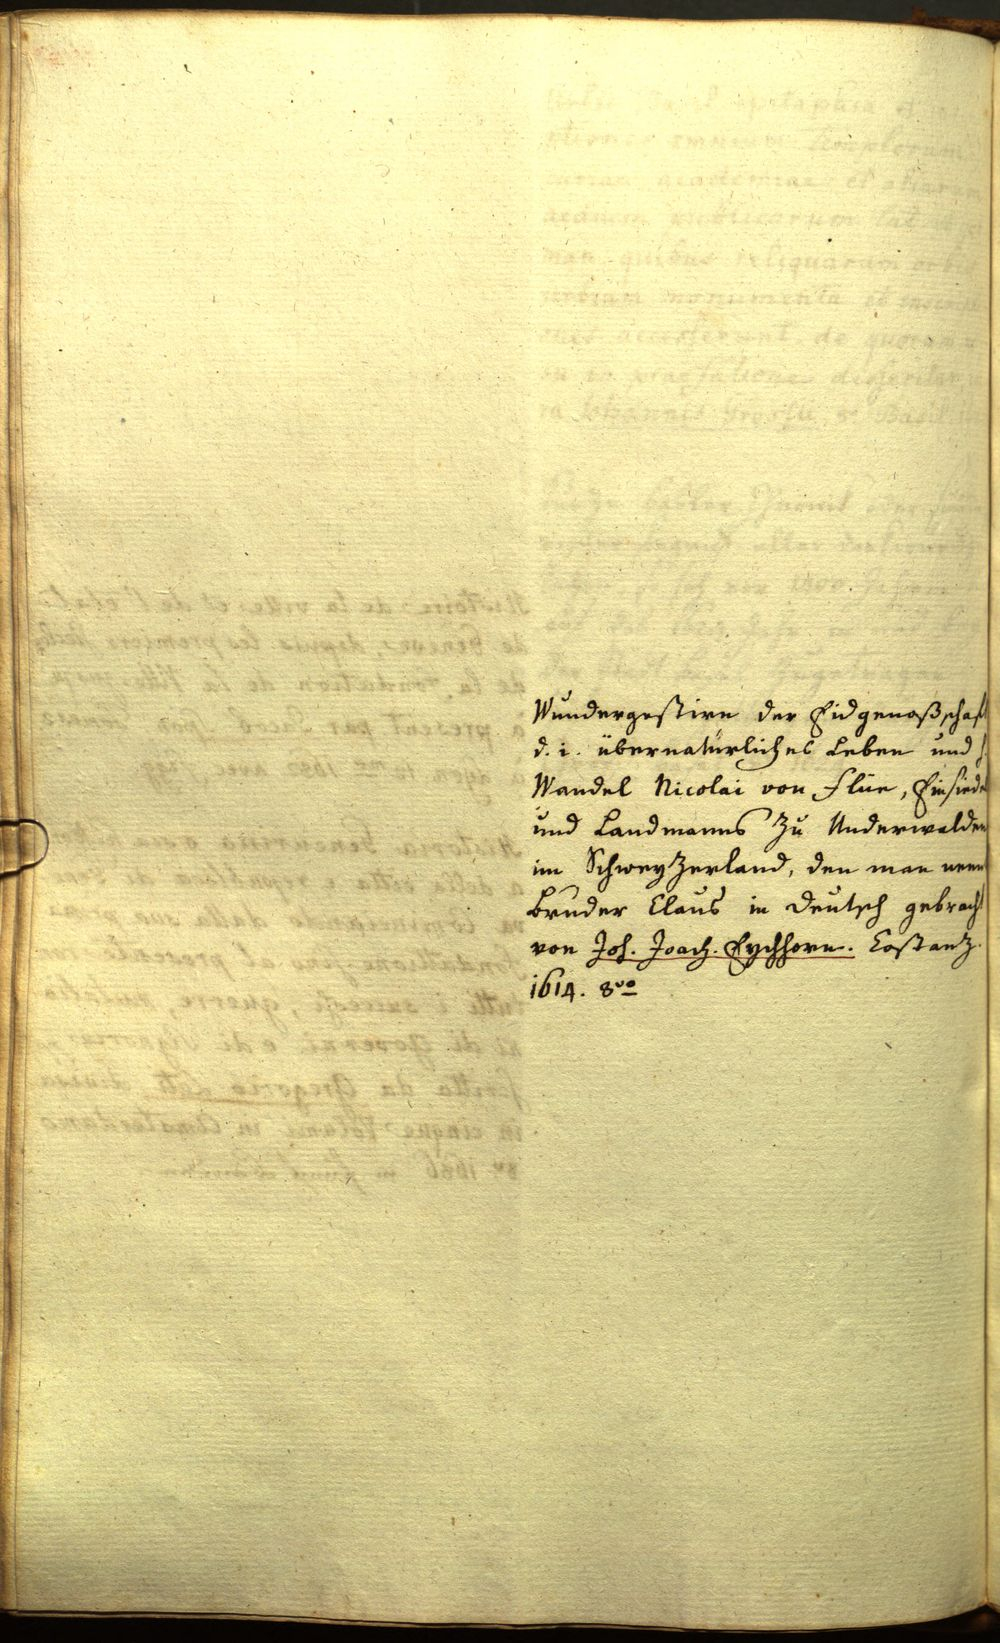 Wundergestirn der Eidgenoßschafft
d. i. übernatürliches Leben und
Wandel Nicolai von Flüe, Einsiedel
und Landmanns zu Underwalden
im Schweytzerland, den man nent
Bruder Claus in Deutsch gebracht
von Joh. Joach. Eychhorn. Costantz.
1614. 8vo